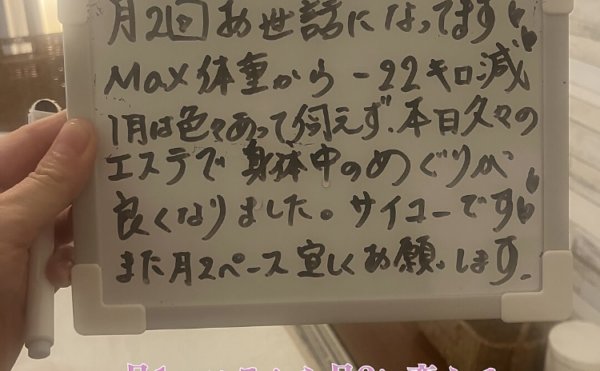 月2回お世話になってます♥♥
Max体重から-22キロ減
1月は色々あって伺えず、本日久々の
エステで身体中のめぐりが
良くなりました。サイコーです♥♥
また月2ペース宜しくお願いします。